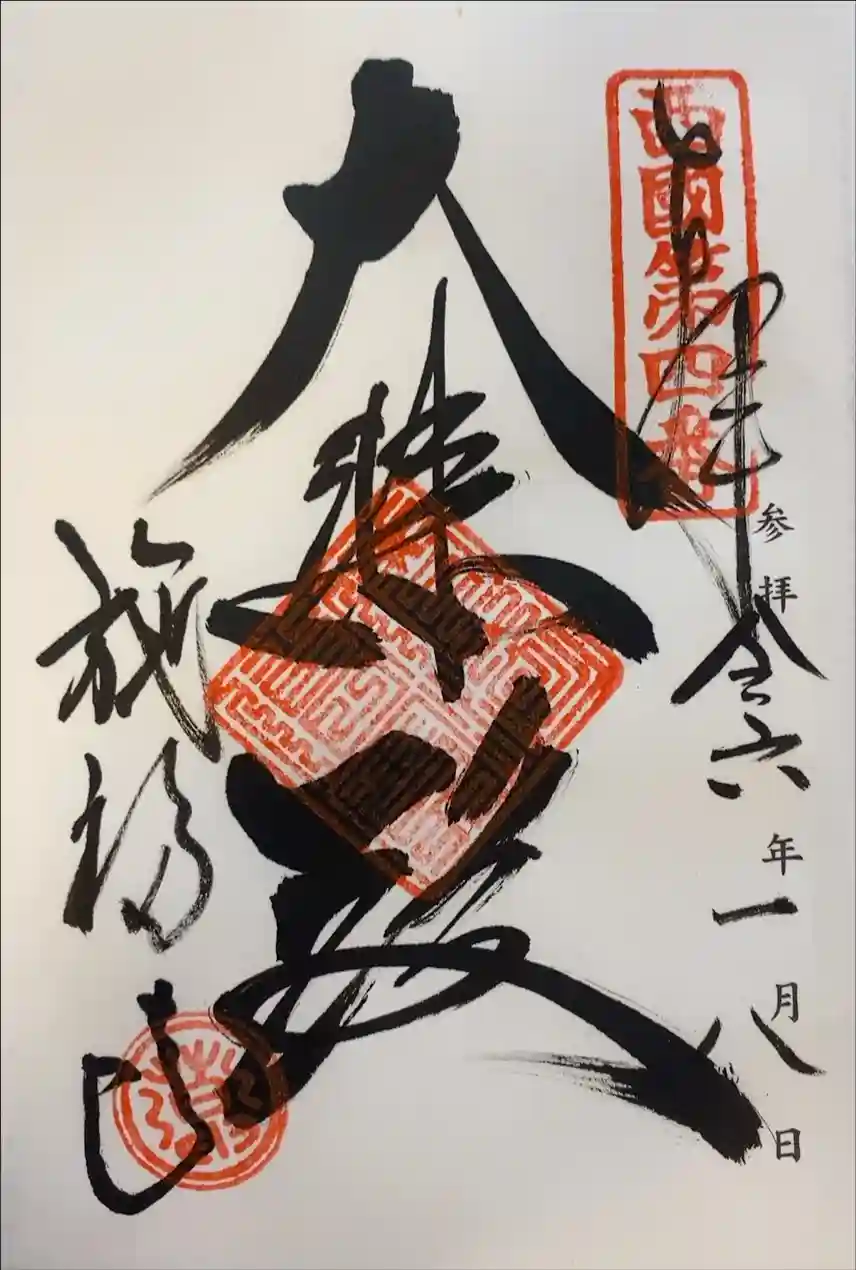 西國第四番
奉拝
参拝 令六年一月八日
大悲殿
施福寺